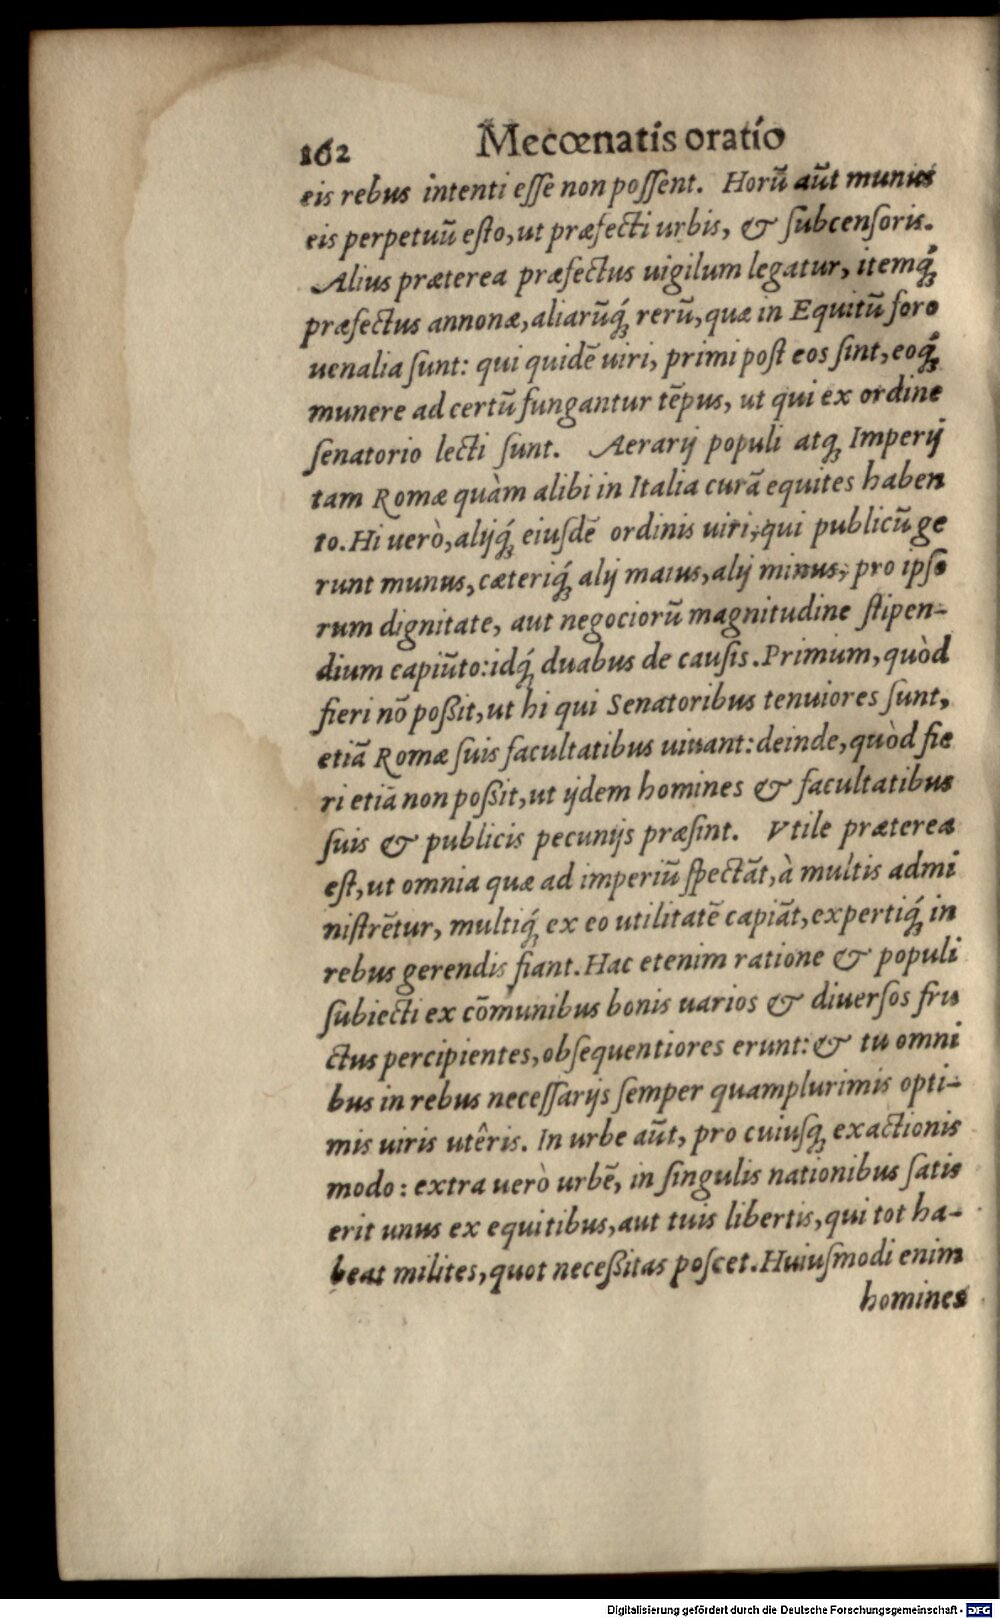 162 Mecœnatis oratio
eis rebus intenti eſſe non poſſent. Horū aūt munus
eis perpetuū eſto, ut præfecti urbis, & ſubcenſoris.
Alius præterea præfectus uigilum legatur, itemq́;
præfectus annonæ, aliarūq́; rerū, quæ in Equitū foro
uenalia ſunt: qui quidē uiri, primi poſt eos ſint, eoq́;
munere ad certū fungantur tēpus, ut qui ex ordine
ſenatorio lecti ſunt. Aerarij populi atq; Imperij
tam Romæ quàm alibi in Italia curā equites haben
to. Hi uerò, alijq́; eiuſdē ordinis uiri, qui publicū ge
runt munus, cæteriq́; alij maius, alij minus, pro ipſo
rum dignitate, aut negociorū magnitudine ſtipen-
dium capiūto: idq́; duabus de cauſis. Primum, quòd
fieri nō poßit, ut hi qui Senatoribus tenuiores ſunt,
etiā Romæ ſuis facultatibus uiuant: deinde, quòd fie
ri etiā non poßit, ut ijdem homines & facultatibus
ſuis & publicis pecunijs præſint. Vtile præterea
eſt, ut omnia quæ ad imperiū ſpectāt, à multis admi
niſtrētur, multiq́; ex eo utilitatē capiāt, expertiq́; in
rebus gerendis fiant. Hac etenim ratione & populi
ſubiecti ex cōmunibus bonis uarios & diuerſos fru
ctus percipientes, obſequentiores erunt: & tu omni
bus in rebus neceſſarijs ſemper quamplurimis opti-
mis uiris utêris. In urbe aūt, pro cuiuſq; exactionis
modo: extra uerò urbē, in ſingulis nationibus ſatis
erit unus ex equitibus, aut tuis libertis, qui tot ha-
beat milites, quot neceßitas poſcet. Huiuſmodi enim
homines
Digitalisierung gefördert durch die Deutsche Forschungsgemeinschaft - DFG